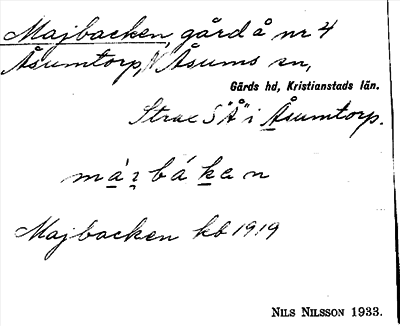 Majbacken, gård å nr 4
Åsumtorp, N Åsums sn,
Gärds hd, Kristianstads län.
Strax S "Å" i Åsumtorp.
Majbacken kb 1919
NILS NILSSON 1933.